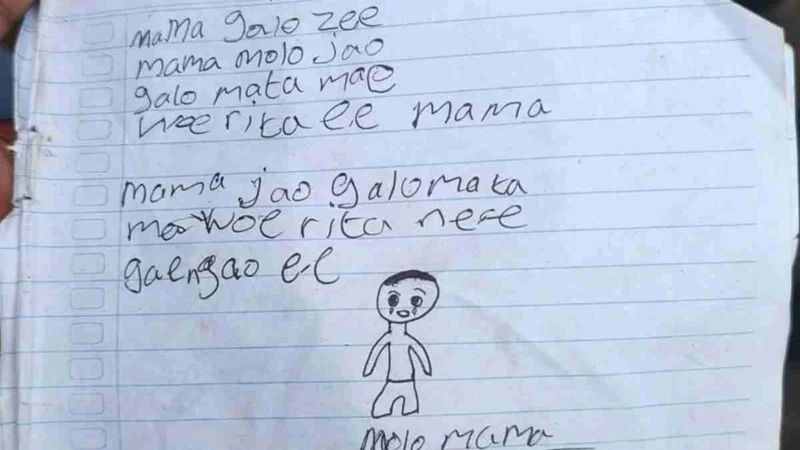 mama galo zee
mama molo jao
galo mata mae
woe rita e.e mama
mama jao galo mata
mae woe rita ne e e
gaengao e-e
molo mama